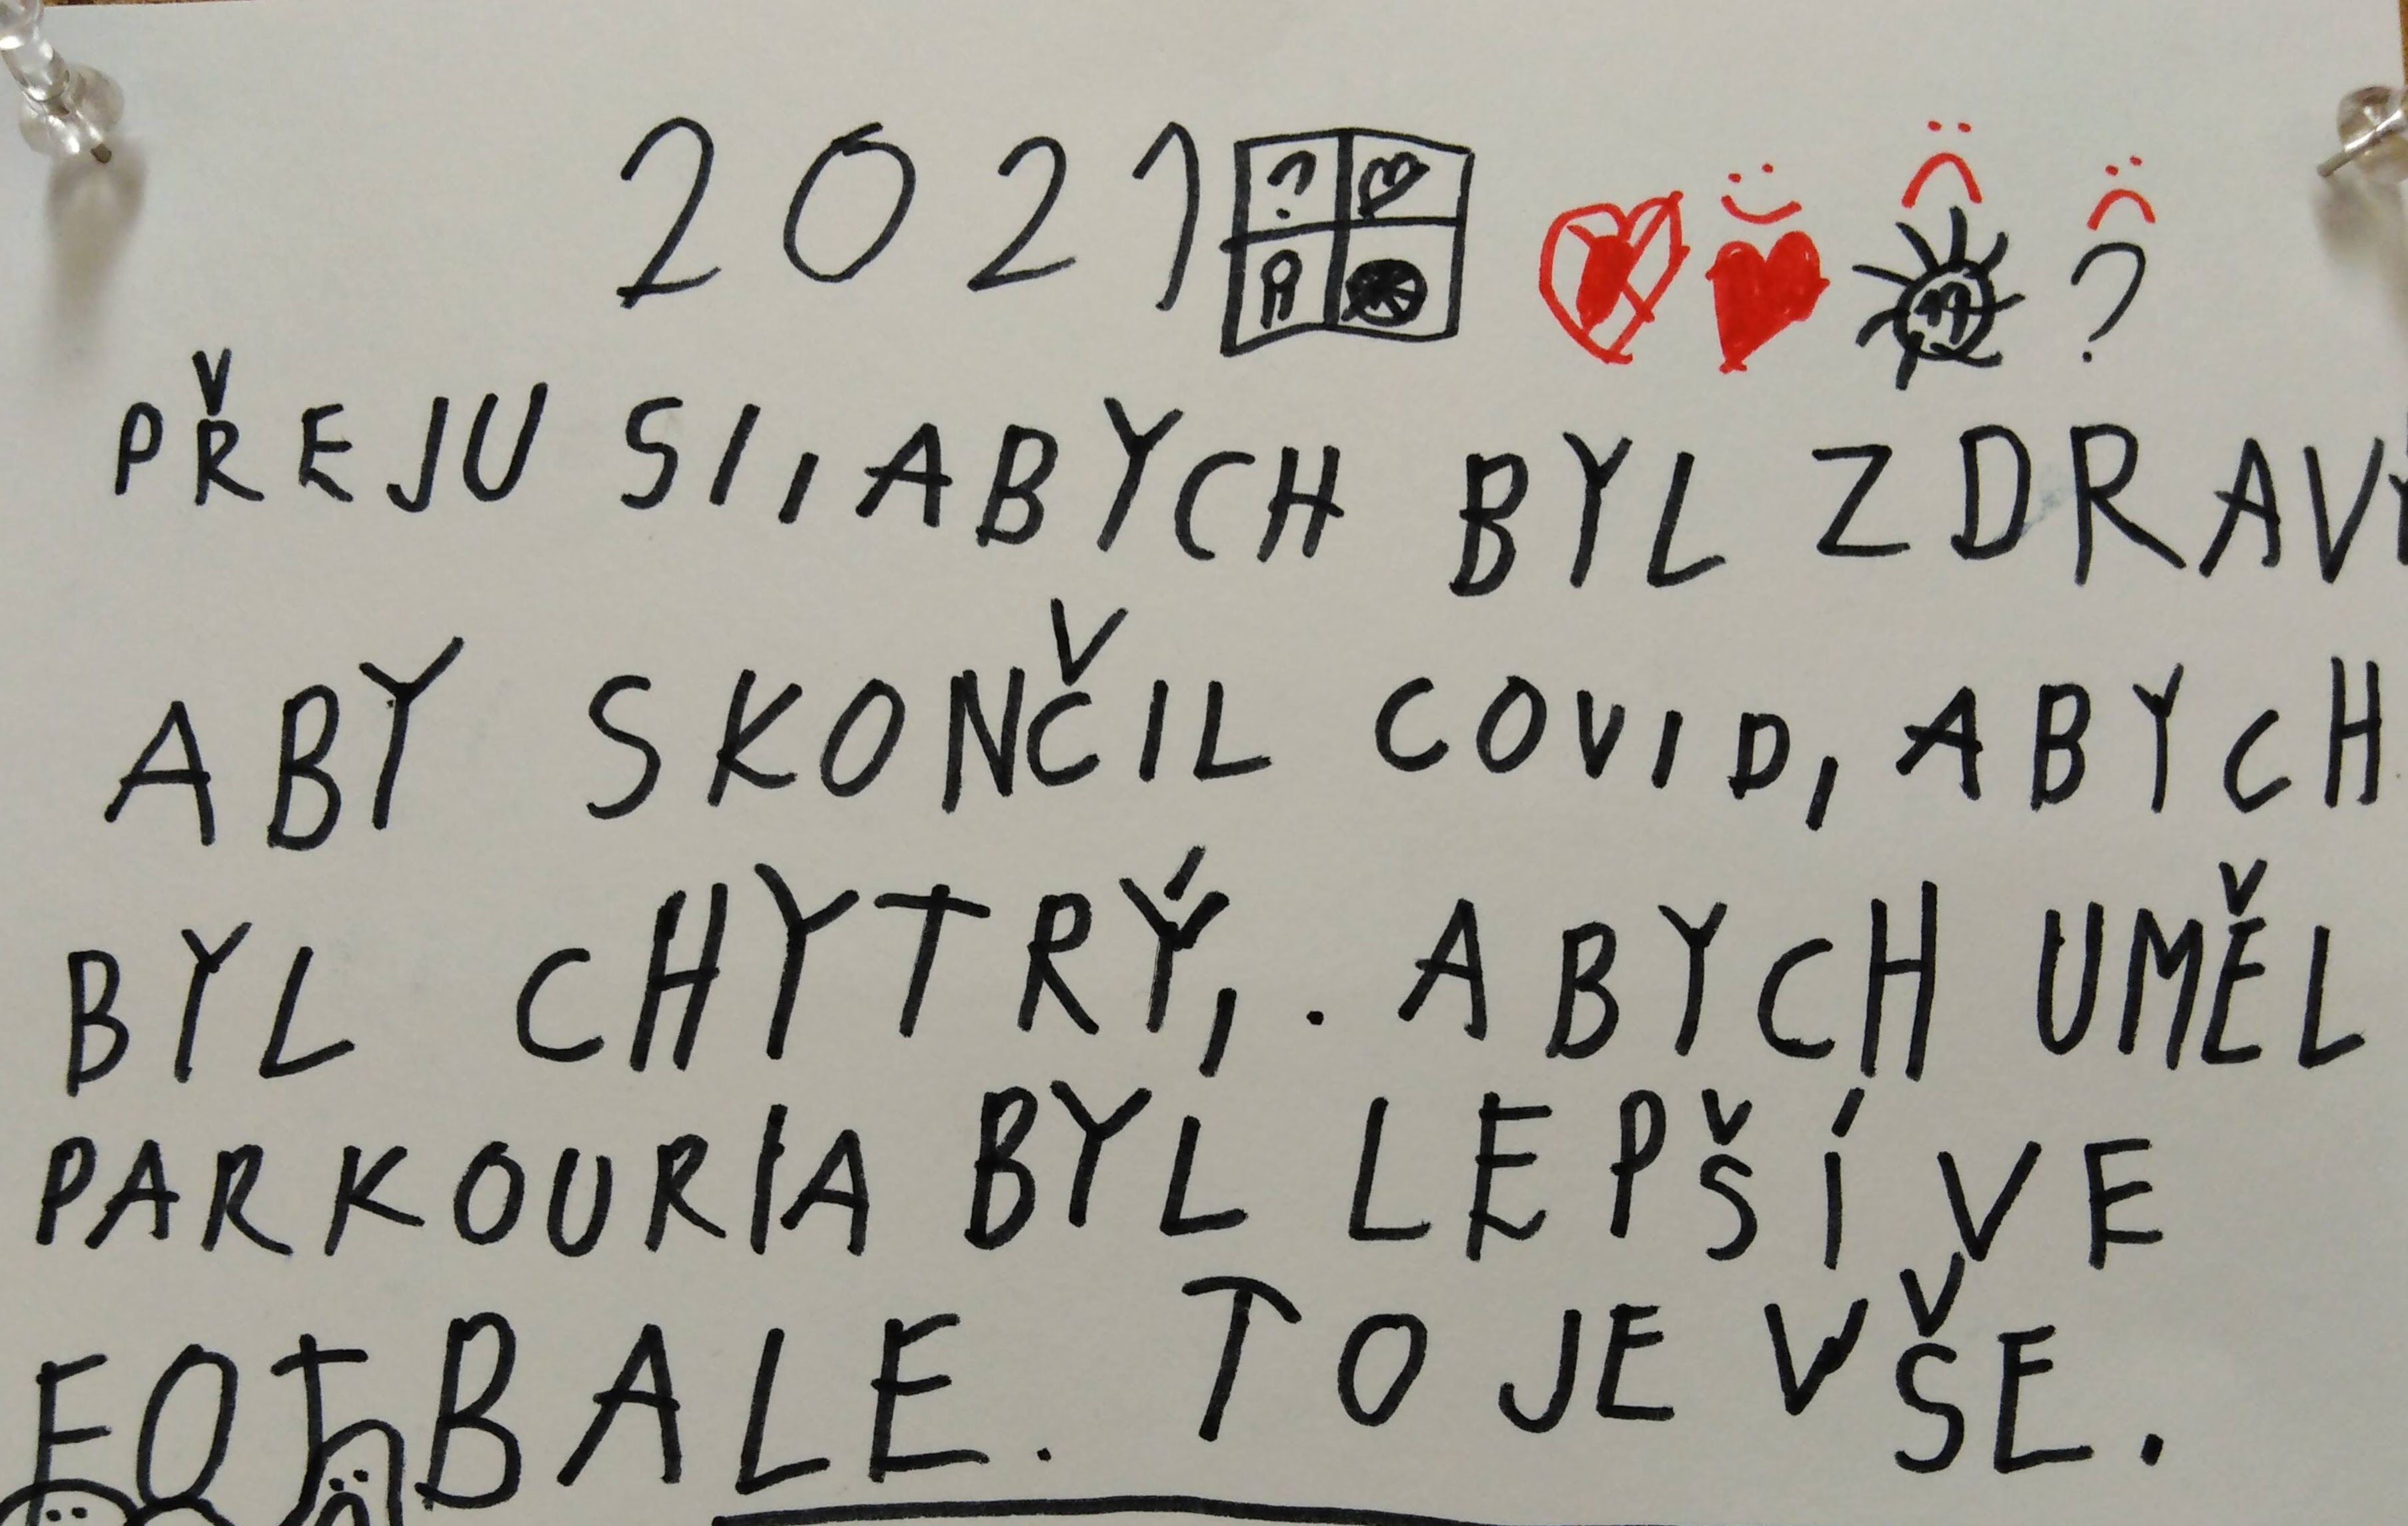 2021
PŘEJU SI, ABYCH BYL ZDRAVÝ
ABY SKONČIL COVID, ABYCH
BYL CHYTRÝ, . ABYCH UMĚL
PARKOUR A BYL LEPŠÍ VE
FOTBALE. TO JE VŠE.